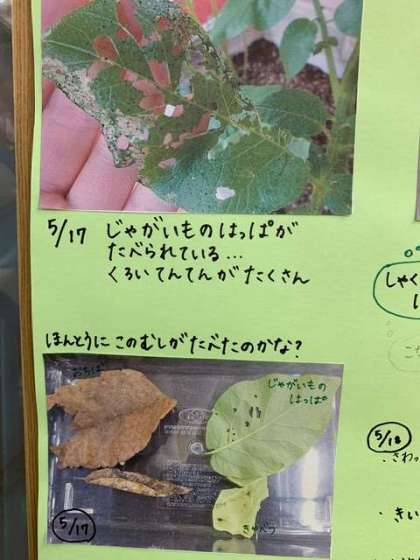 5/17 じゃがいものはっぱが
たべられている…
くろいてんてんがたくさん
しゃく
ほんとうにこのむしがたべたのかな?
おちば
じゃがいもの
はっぱ
きゃべつ
5/17
5/18
・さわっ
・きい